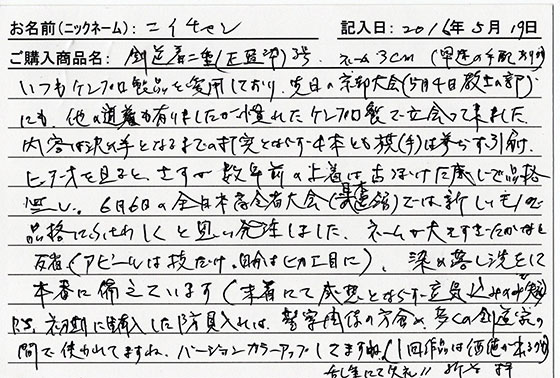 お名前(ニックネーム): ニイチャン 記入日: 2016年5月19日
ご購入商品名: 剣道着二重(正藍染)3号. ネーム3cm (早速の手配ありがとう)
いつもケンプロ製品を愛用しており、先日の京都大会(5月4日教士の部)
にも、他の道着も有りましたが慣れたケンプロ製で立会って来ました.
内容は決め手となるまでの打突とならず4本とも旗(手)は挙らず引分け.
ビデオを見ると、さすが数年前の上着は色ぼけた感じで品格
無し。6月6日の全日本高令者大会(日本武道館)では新しいもので
品格にふさわしくと思い発注しました. ネームが大きすぎたかなと
反省(アピールは技だけ.自分はヒカエ目に)、染め落し洗をして
本番に備えています(未着にて感想とならず
P.S. 初期に購入した防具入れは、警察関係の方含め、多くの剣道家の
間で使われてますね. バージョンカラーアップしてますね(1回作品は価値が
乱筆にて失礼!!